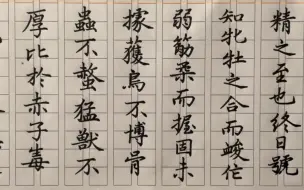 精之至也終日號
知牝牡之合而峻作
弱筋柔而握固未
據獲鳥不博骨
蟲不螫猛獸不
厚比於赤子毒